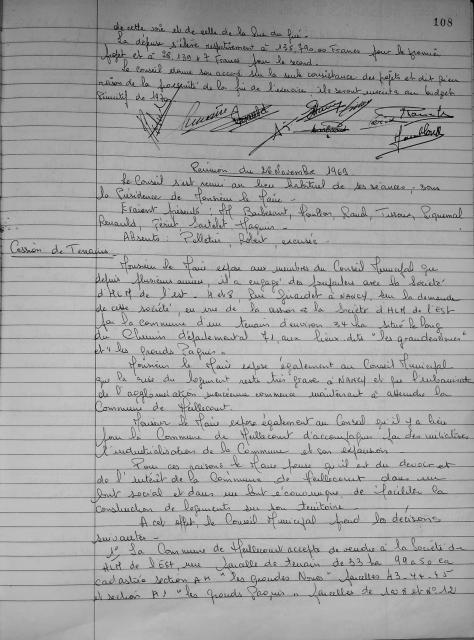 108
de cette voie et de celle de la Rue du Gué.
La dépense s'élève respectivement à 135.790.00 Francs pour le premier
projet et à 28.139.47 Francs pour le second.
Le Conseil donne son accord sur la consistance des projets et dit qu'en
raison de la proximité de la fin de l'exercice, ils seront inscrits au budget
Primitif de 1970
Réunion du 28 Novembre 1969
Le Conseil s'est réuni au lieu habituel de ses séances, sous
la Présidence de Monsieur le Maire.
Étaient présents : MM
Renauld,
Absents : Pelletier, Robert, excusés
Cession de Terrains
Monsieur le Maire expose aux membres du Conseil Municipal que
depuis plusieurs années, il a engagé des pourparlers avec la Société
d'HLM de l'Est. Rue à NANCY, sur la demande
de cette société, en vue de la cession à la Société d'HLM de l'Est
par la commune d'un terrain d'environ 34 ha situé le long
du Chemin départemental 71, aux lieux-dits "les grandes Noues"
et "les grands Pâquis"
Monsieur le Maire expose également au Conseil Municipal
que la crise du logement reste très grave à NANCY et que l'urbanisation
de l'agglomération nancéienne commence maintenant à atteindre la
Commune de Heillecourt.
Monsieur le Maire expose également au Conseil qu'il y a lieu
pour la Commune de Heillecourt d'accompagner par des initiatives
l'industrialisation de la Commune et son expansion.
Pour ces raisons le Maire pense qu'il est du devoir et
de l'intérêt de la Commune de Heillecourt dans un
but social et dans un but économique, de faciliter la
construction de logements sur son territoire.
A cet effet, le Conseil Municipal prend les décisions
suivantes -
1° La Commune de Heillecourt accepte de vendre à la Société d'
HLM de l'Est une parcelle de terrain de 33 ha 99 a 50 ca
cadastrée section AH "les grandes Noues" parcelles 43-44-45
et section "les grands Pâquis" parcelles de 1 à 8 et N° 12